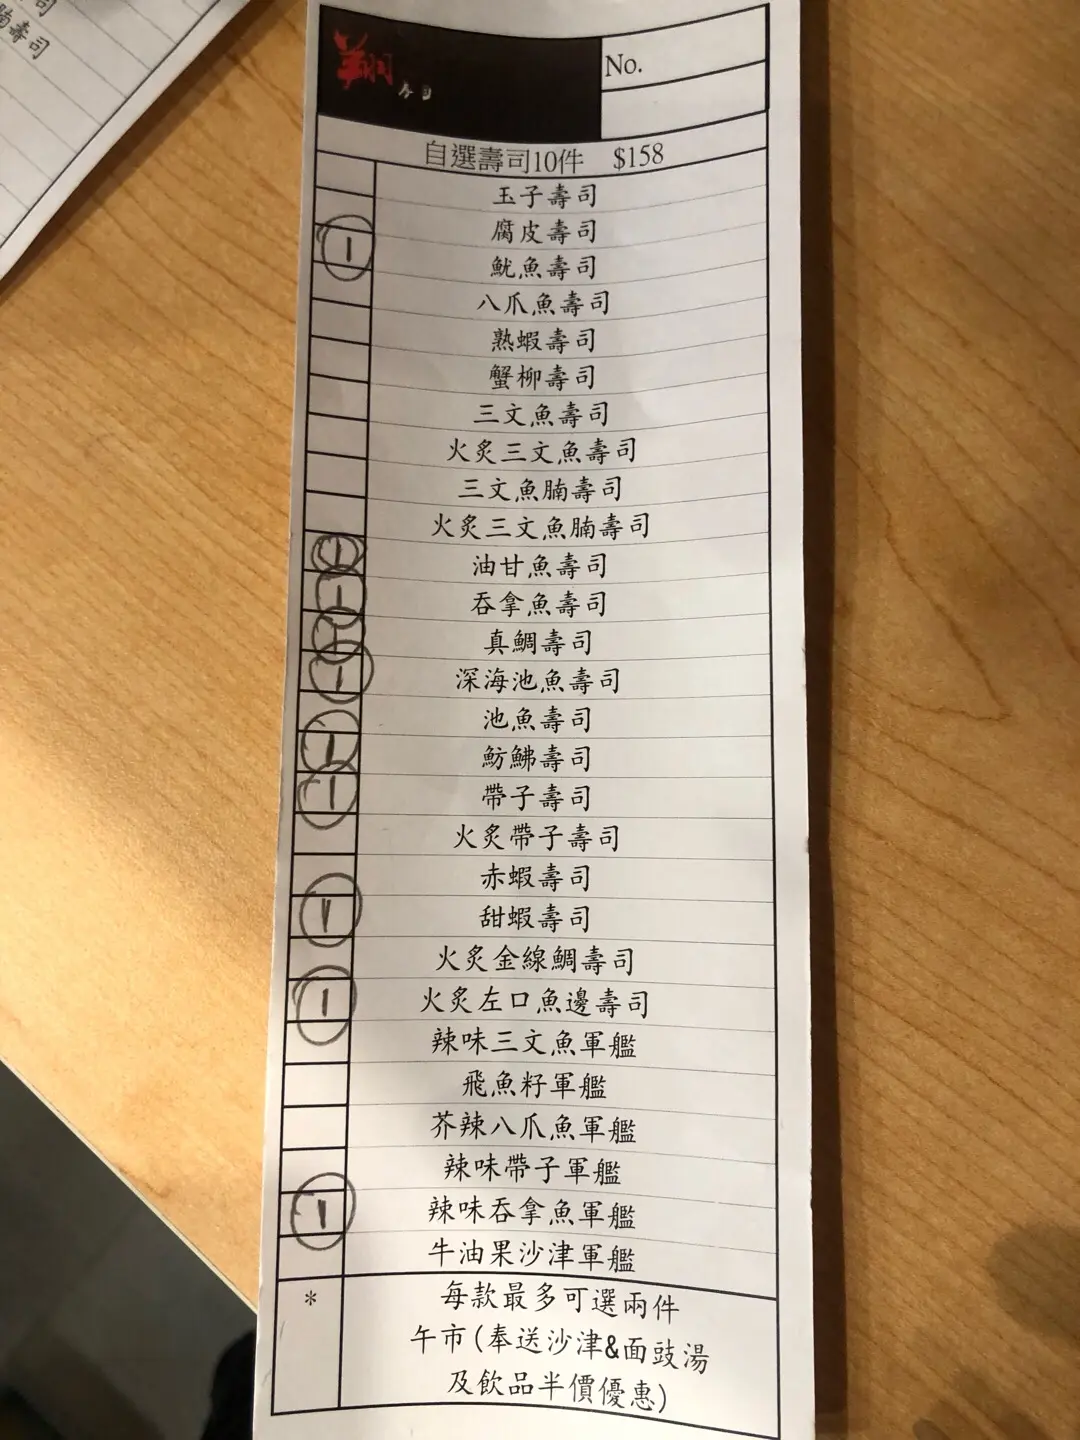 司
腩壽司
翔
壽司
No.
自選壽司10件 $158
玉子壽司
腐皮壽司
1
魷魚壽司
八爪魚壽司
熟蝦壽司
蟹柳壽司
三文魚壽司
火炙三文魚壽司
三文魚腩壽司
火炙三文魚腩壽司
1 油甘魚壽司
1 吞拿魚壽司
1 真鯛壽司
1 深海池魚壽司
池魚壽司
1 魴鮄壽司
1 帶子壽司
火炙帶子壽司
赤蝦壽司
1 甜蝦壽司
火炙金線鯛壽司
1 火炙左口魚邊壽司
辣味三文魚軍艦
飛魚籽軍艦
芥辣八爪魚軍艦
辣味帶子軍艦
1 辣味吞拿魚軍艦
牛油果沙津軍艦
* 每款最多可選兩件
午市(奉送沙津&面豉湯
及飲品半價優惠)